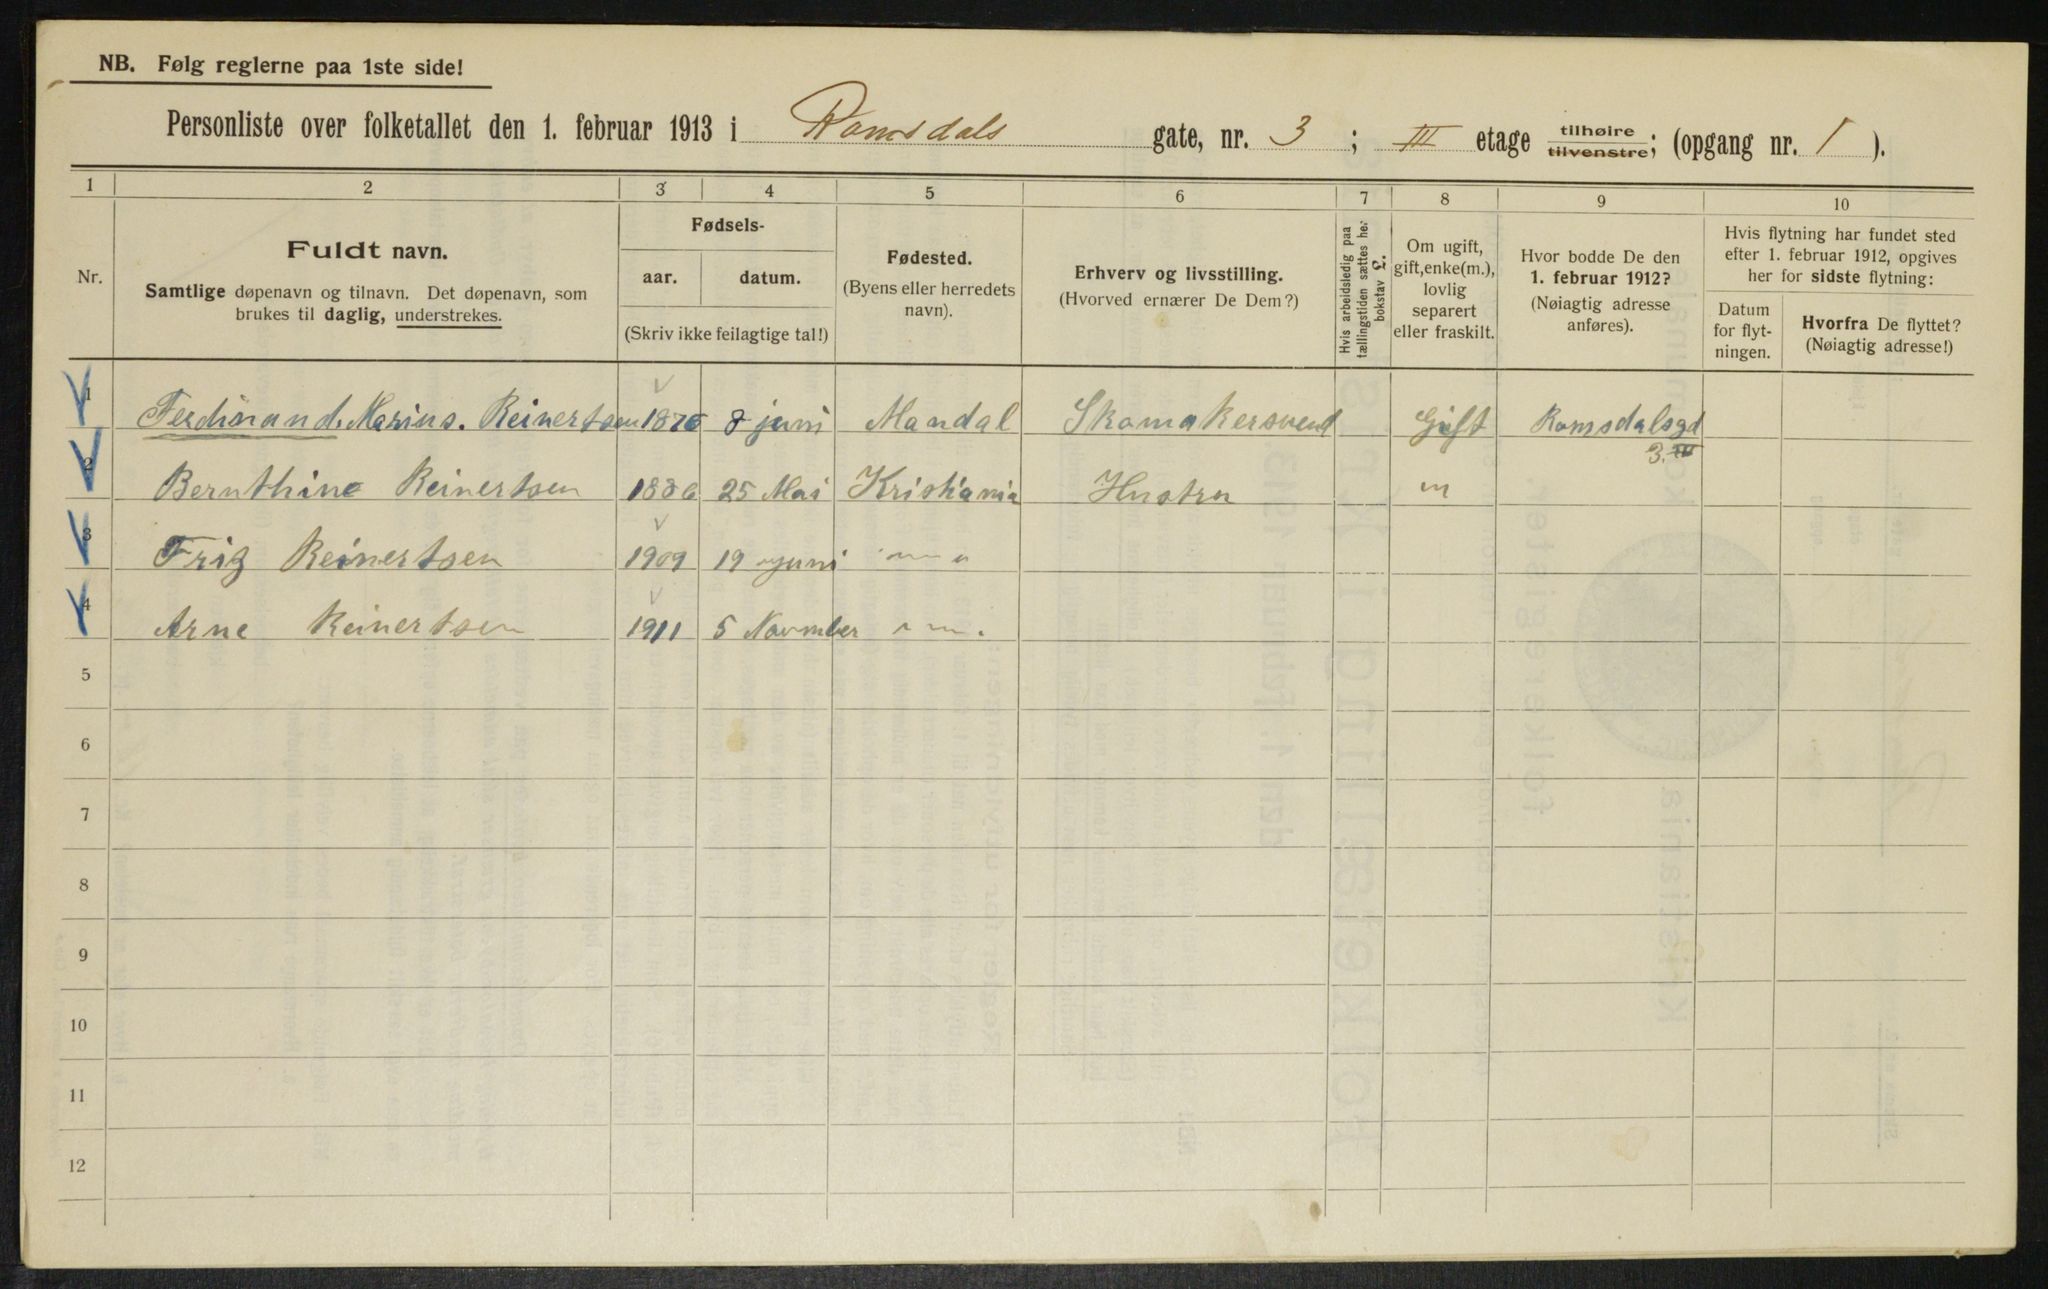 NB. Følg reglerne paa 1ste side!
Personliste over folketallet den 1. februar 1913 i Romsdals gate, nr. 3 ; III etage tilhøire tilvenstre; (opgang nr. 1 ).
1 2 3 4 5 6 7 8 9 10
Nr.
Fuldt navn.
Samtlige døpenavn og tilnavn. Det døpenavn, som
brukes til daglig, understrekes.
Fødsels-
aar. datum.
(Skriv ikke feilagtige tal!)
Fødested.
(Byens eller herredets
navn).
Erhverv og livsstilling.
(Hvorved ernærer De Dem?)
Hvis arbeidsledig paa
tællingstiden sættes her
bokstav L.
Om ugift,
gift, enke(m.),
lovlig
separert
eller fraskilt.
Hvor bodde De den
1. februar 1912?
(Nøiagtig adresse
anføres).
Hvis flytning har fundet sted
efter 1. februar 1912, opgives
her for sidste flytning:
Datum
for flyt-
ningen.
Hvorfra De flyttet?
(Nøiagtig adresse!)
1 Ferdinand. Marius. Reinertsen 1876 8 juni Mandal Skomakersvend Gift Romsdalsgd
3. III
2 Bernthine Reinertsen 1886 25 Mai Kristiania Hustru "
3 Frig Reinertsen 1909 19 Juni " "
4 Arne Reinertsen 1911 5 Novmber " "
5
6
7
8
9
10
11
12